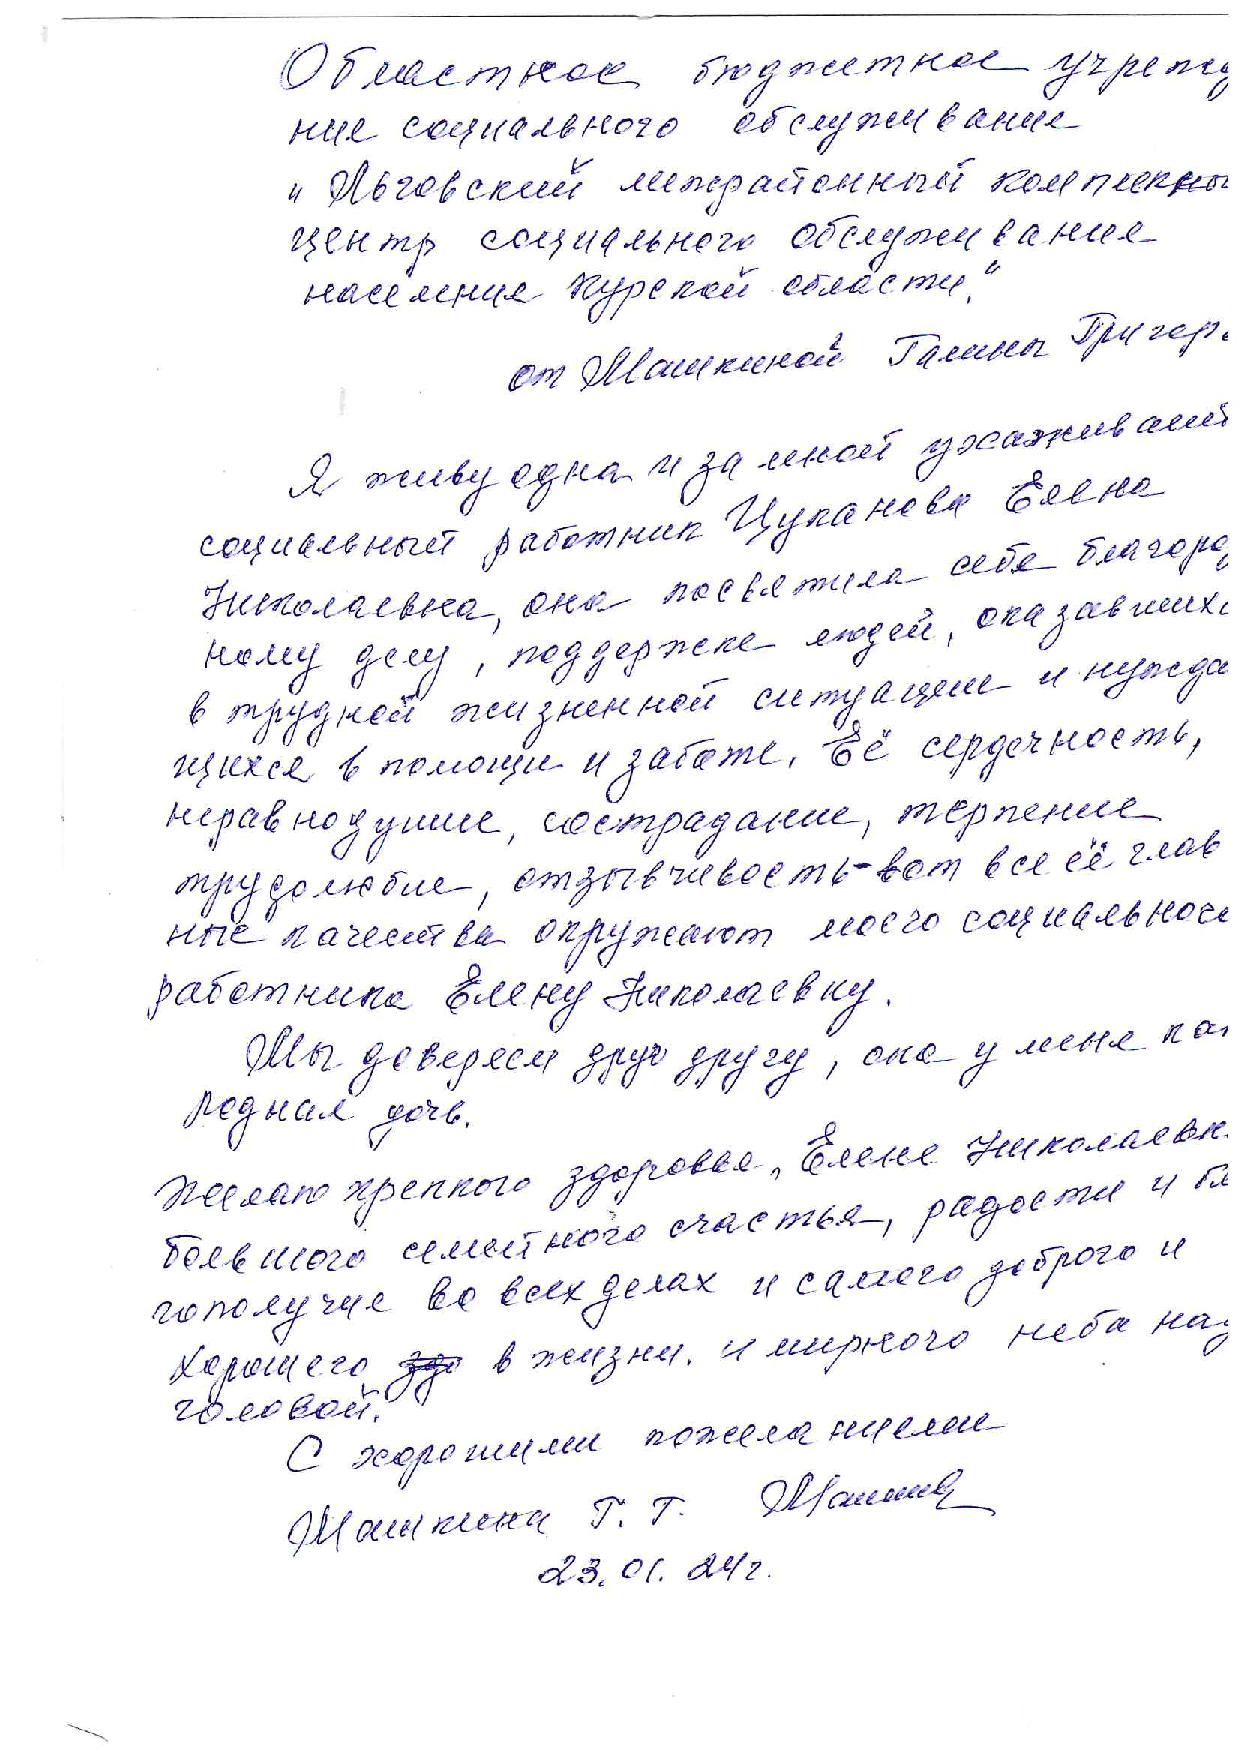 Областное бюджетное учрежд
ние социального обслуживание
"Льговский межрайонный комплексны
центр социального обслуживания
населения Курской области."
от Машкиной Галины Григор
Я живу одна и за мной ухаживает
социальный работник Цуканова Елена
Николаевна, она посвятила себя благород
ному делу, поддержке людей, оказавшихс
в трудной жизненной ситуации и нужда
щихся в помощи и заботе. Её сердечность,
неравнодушие, сострадание, терпение
трудолюбие, отзывчивость-вот все её глав
ные качества окружают моего социального
работника Елену Николаевну.
Мы доверяем друг другу, она у меня как
родная дочь.
Желаю крепкого здоровья, Елене Николаевн
большого семейного счастья, радости и бла
гополучие во всех делах и самого доброго и
хорошего в жизни. и мирного неба над
головой.
С хорошими пожеланиями
Машкина Г. Г.
23.01.24г.